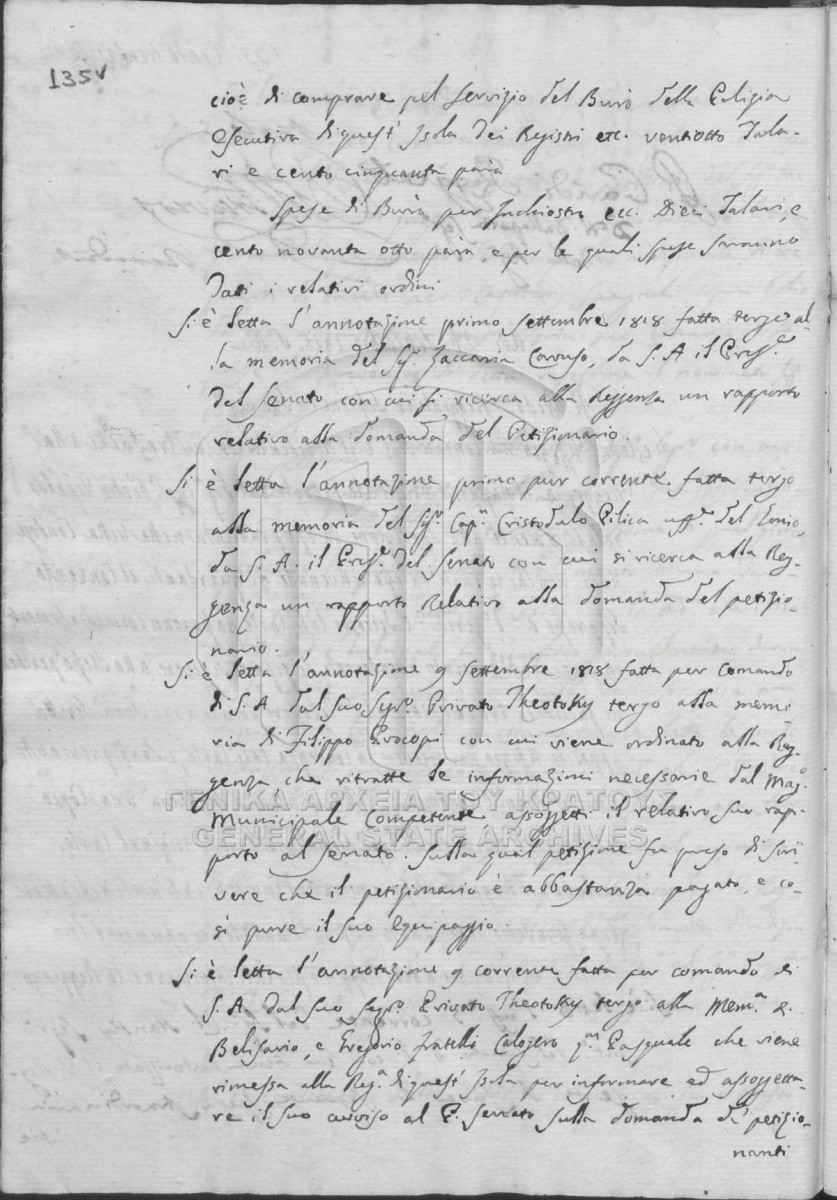 135v
cioè di comprare pel servizio del Burò della Polizia
esecutiva di quest' Isola dei Registri etc. ventiotto Tala-
ri e cento cinquanta parà
Spese di Burò per Inchiostri ecc. Dieci Talari, e
cento novanta otto parà, e per le quali spese saranno
dati i relativi ordini
Si è letta l'annotazione primo settembre 1818 fatta tergo al-
la memoria del Sigr. Zaccaria Caruso, da S. A il Presi.e
del Senato con cui si ricerca alla Reggenza un rapporto
relativo alla domanda del Petizionario.
Si è letta l'annotazione primo pur corrente fatta tergo
alla memoria del Sigr. Capn. Cristodulo Pilica uff.e del
da S. A. il Presi.e del Senato con cui si ricerca alla Reg-
genza un rapporto relativo alla domanda del petizio-
nario.
Si è letta l'annotazione 9 settembre 1818 fatta per comando
di S. A dal suo Segr.o Privato Theotoky tergo alla memo-
ria di Filippo Procopi con cui viene ordinato alla Reg-
genza, che ritratte le informazioni necessarie dal Mag.o
Municipale Competente assoggetti il relativo suo rap-
porto al Senato. Sulla qual petizione fu preso di scri-
vere che il petizionario è abbastanza pagato, e co-
sì pure il suo Equipaggio.
Si è letta l'annotazione 9 corrente fatta per comando di
S. A dal suo Segr.o Privato Theotoky tergo alla Mem.a di
Belisario, e Gregorio fratelli Calogero qm. Pasquale che viene
rimessa alla Reg.a di quest' Isola per informare ed assoggetta-
re il suo avviso al P. Senato sulla domanda de' petizio-
nanti
ΓΕΝΙΚΑ ΑΡΧΕΙΑ ΤΟΥ ΚΡΑΤΟΥΣ
GENERAL STATE ARCHIVES